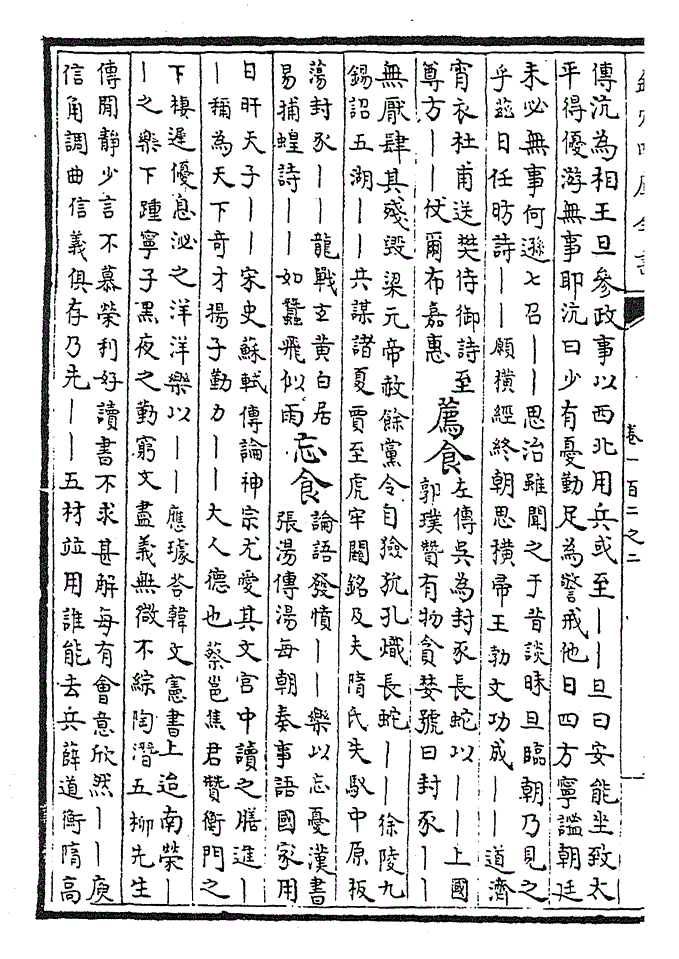 欽定四庫全書
卷一百二之二
傳沆為相王旦參政事以西北用兵或至〡〡旦曰安能坐致太
平得優游無事耶沆曰少有憂勤足為警戒他日四方寧謐朝廷
未必無事何遜七召〡〡思治雖聞之于昔談昧旦臨朝乃見之
乎茲日任昉詩〡〡願橫經終朝思橫帝王勃文功成〡〡道濟
宵衣杜甫送樊侍御詩至
尊方〡〡仗爾布嘉惠
薦食
左傳吳為封豕長蛇以〡〡上國
郭璞贊有物貪婪號曰封豕〡〡
無厭肆其殘毀梁元帝赦餘黨令自獫狁孔熾長蛇〡〡徐陵九
錫詔五湖〡〡共謀諸夏賈至虎牢關銘及夫隋氏失馭中原板
蕩封豕〡〡龍戰玄黃白居
易捕蝗詩〡〡如蠶飛似雨
忘食
論語發憤〡〡樂以忘憂漢書
張湯傳湯每朝奏事語國家用
日旰天子〡〡宋史蘇軾傳論神宗尤愛其文宮中讀之膳進〡
〡稱為天下奇才揚子勤力〡〡大人德也蔡邕焦君贊衡門之
下棲遲優息泌之洋洋樂以〡〡應璩答韓文憲書上追南榮〡
〡之樂下踵寧子黑夜之勤窮文盡義無微不綜陶潛五柳先生
傳閒靜少言不慕榮利好讀書不求甚解每有會意欣然〡〡庾
信角調曲信義俱存乃先〡〡五材竝用誰能去兵薛道衡隋高